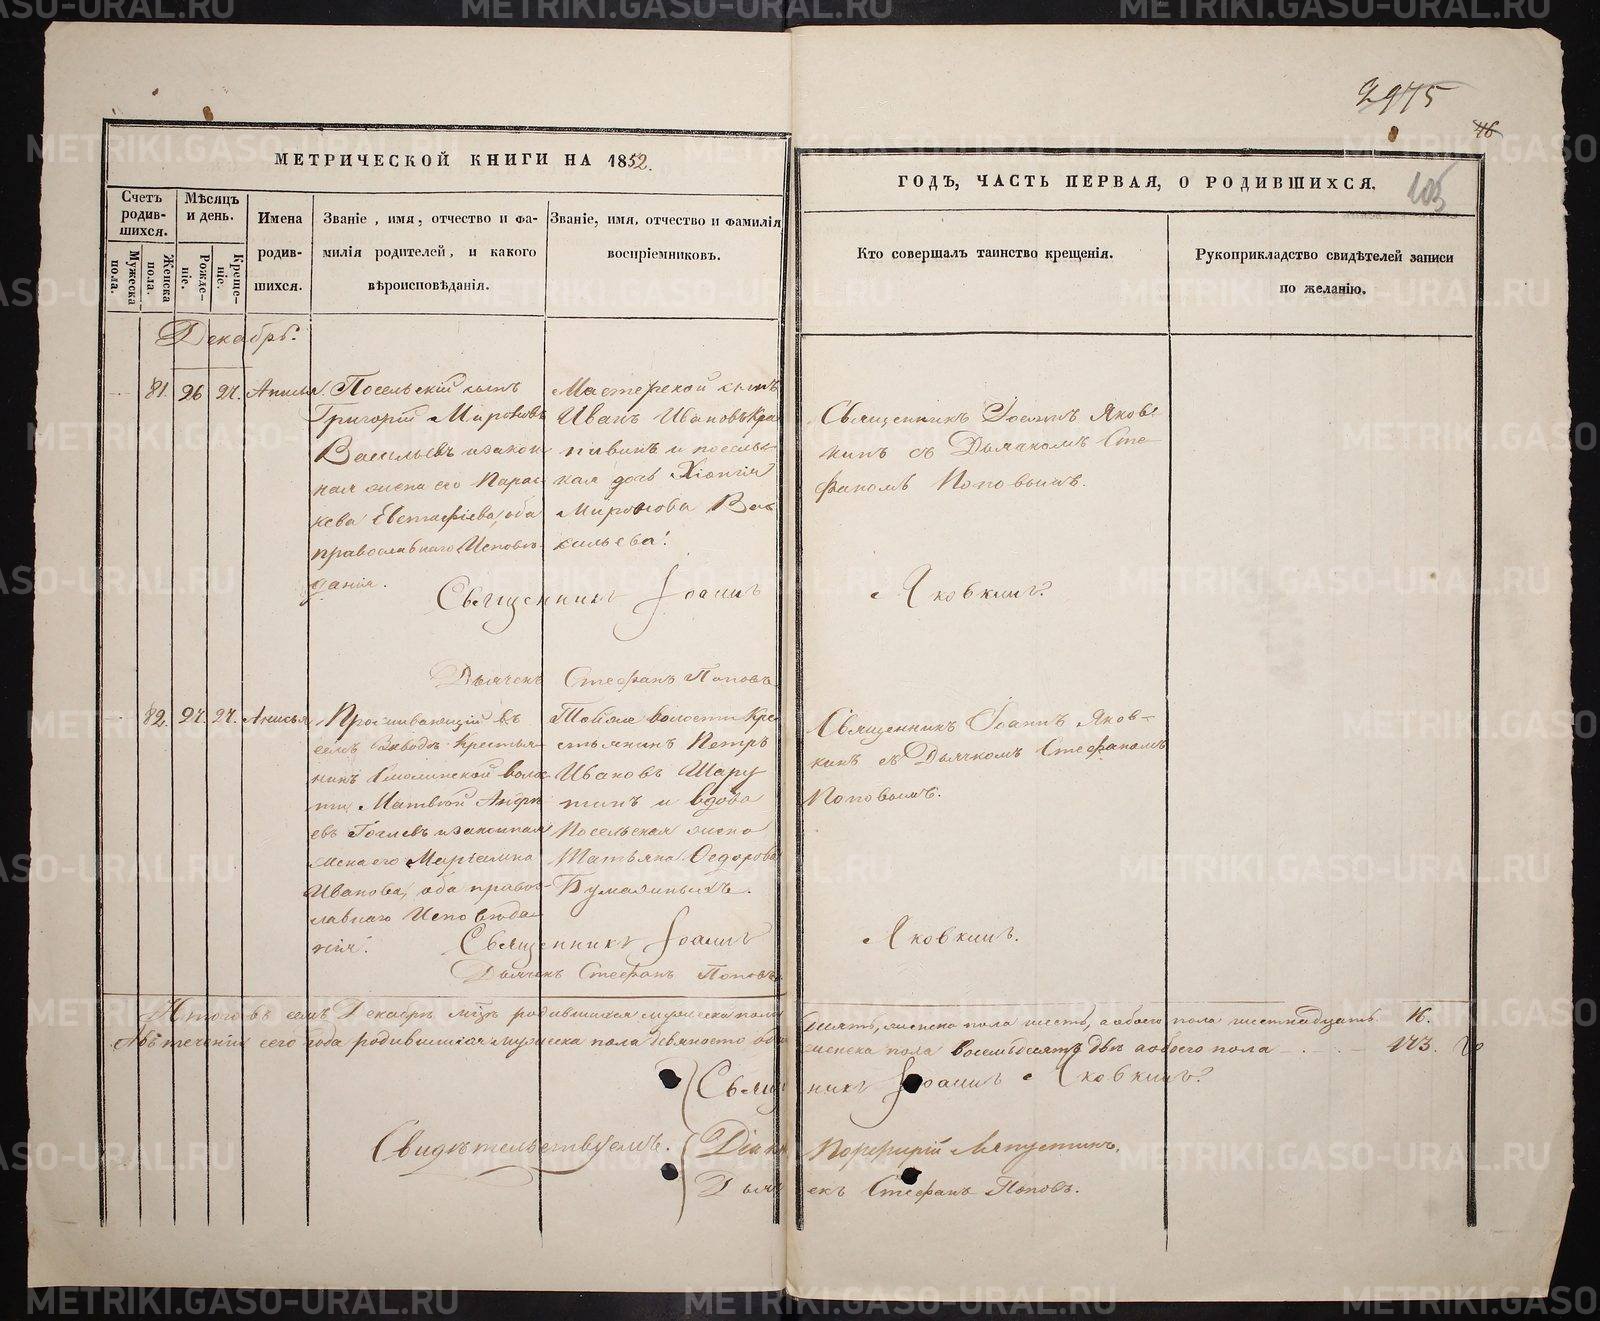 2975
46
105
МЕТРИЧЕСКОЙ КНИГИ НА 1852.
ГОДЪ, ЧАСТЬ ПЕРВАЯ, О РОДИВШИХСЯ.
Счетъ родившихся.
Мужеска пола.
Женска пола.
Мѣсяцъ и день.
Рожденіе.
Крещеніе.
Имена родившихся.
Званіе, имя, отчество и фамилія родителей, и какого вѣроисповѣданія.
Званіе, имя, отчество и фамилія воспріемниковъ.
Кто совершалъ таинство крещенія.
Рукоприкладство свидѣтелей записи по желанію.
Декабрь.
81. 26 27. Анисья
Посельскій сынъ
Григорій Мироновъ
Васильевъ и закон
ная жена его Парас
кева Евстафіева, оба
православнаго Исповѣ
данія.
Мастерской сынъ
Иванъ Ивановъ Кра
пивинъ и посельс
кая дочь Хіонія
Миронова Ва
сильева.
Священникъ Іоаннъ Яков
кинъ съ Дьячкомъ Сте
фаномъ Поповымъ.
Священникъ Іоаннъ Яковкинъ.
Дьячекъ Стефанъ Поповъ
82. 27. 27. Анисья
Проживающій въ
семъ Заводѣ Крестья
нинъ Смолинской волос
ти Матвѣй Андре
евъ и законная
жена его Маріамна
Иванова, оба правос
лавнаго Исповѣда
нія.
волости Кре
стьянинъ Петръ
Ивановъ Шару
пинъ и вдова
Посельская жена
Татьяна Ѳедорова
Бумагиныхъ.
Священникъ Іоаннъ Яков-
кинъ съ Дьячкомъ Стефаномъ
Поповымъ.
Священникъ Іоаннъ Яковкинъ.
Дьячекъ Стефанъ Поповъ
Итого въ семъ Декабрѣ мцѣ родившихся мужеска пола десять, женска пола шесть, а обоего пола шестнадцать. 16.
А въ теченіи сего года родившихся мужеска пола девяносто женска пола восемьдесятъ двѣ а обоего пола 173.
Священникъ Іоаннъ Яковкинъ.
Свидѣтельствуемъ. Діаконъ Порфирій Ляпустинъ.
Дьячекъ Стефанъ Поповъ.
METRIKI.GASO-URAL.RU